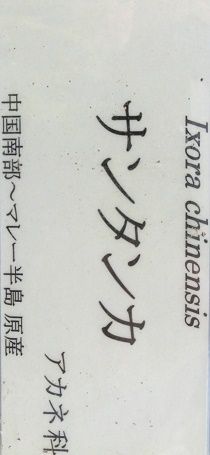 Ixora chinensis
サンタンカ
アカネ科
中国南部～マレー半島 原産